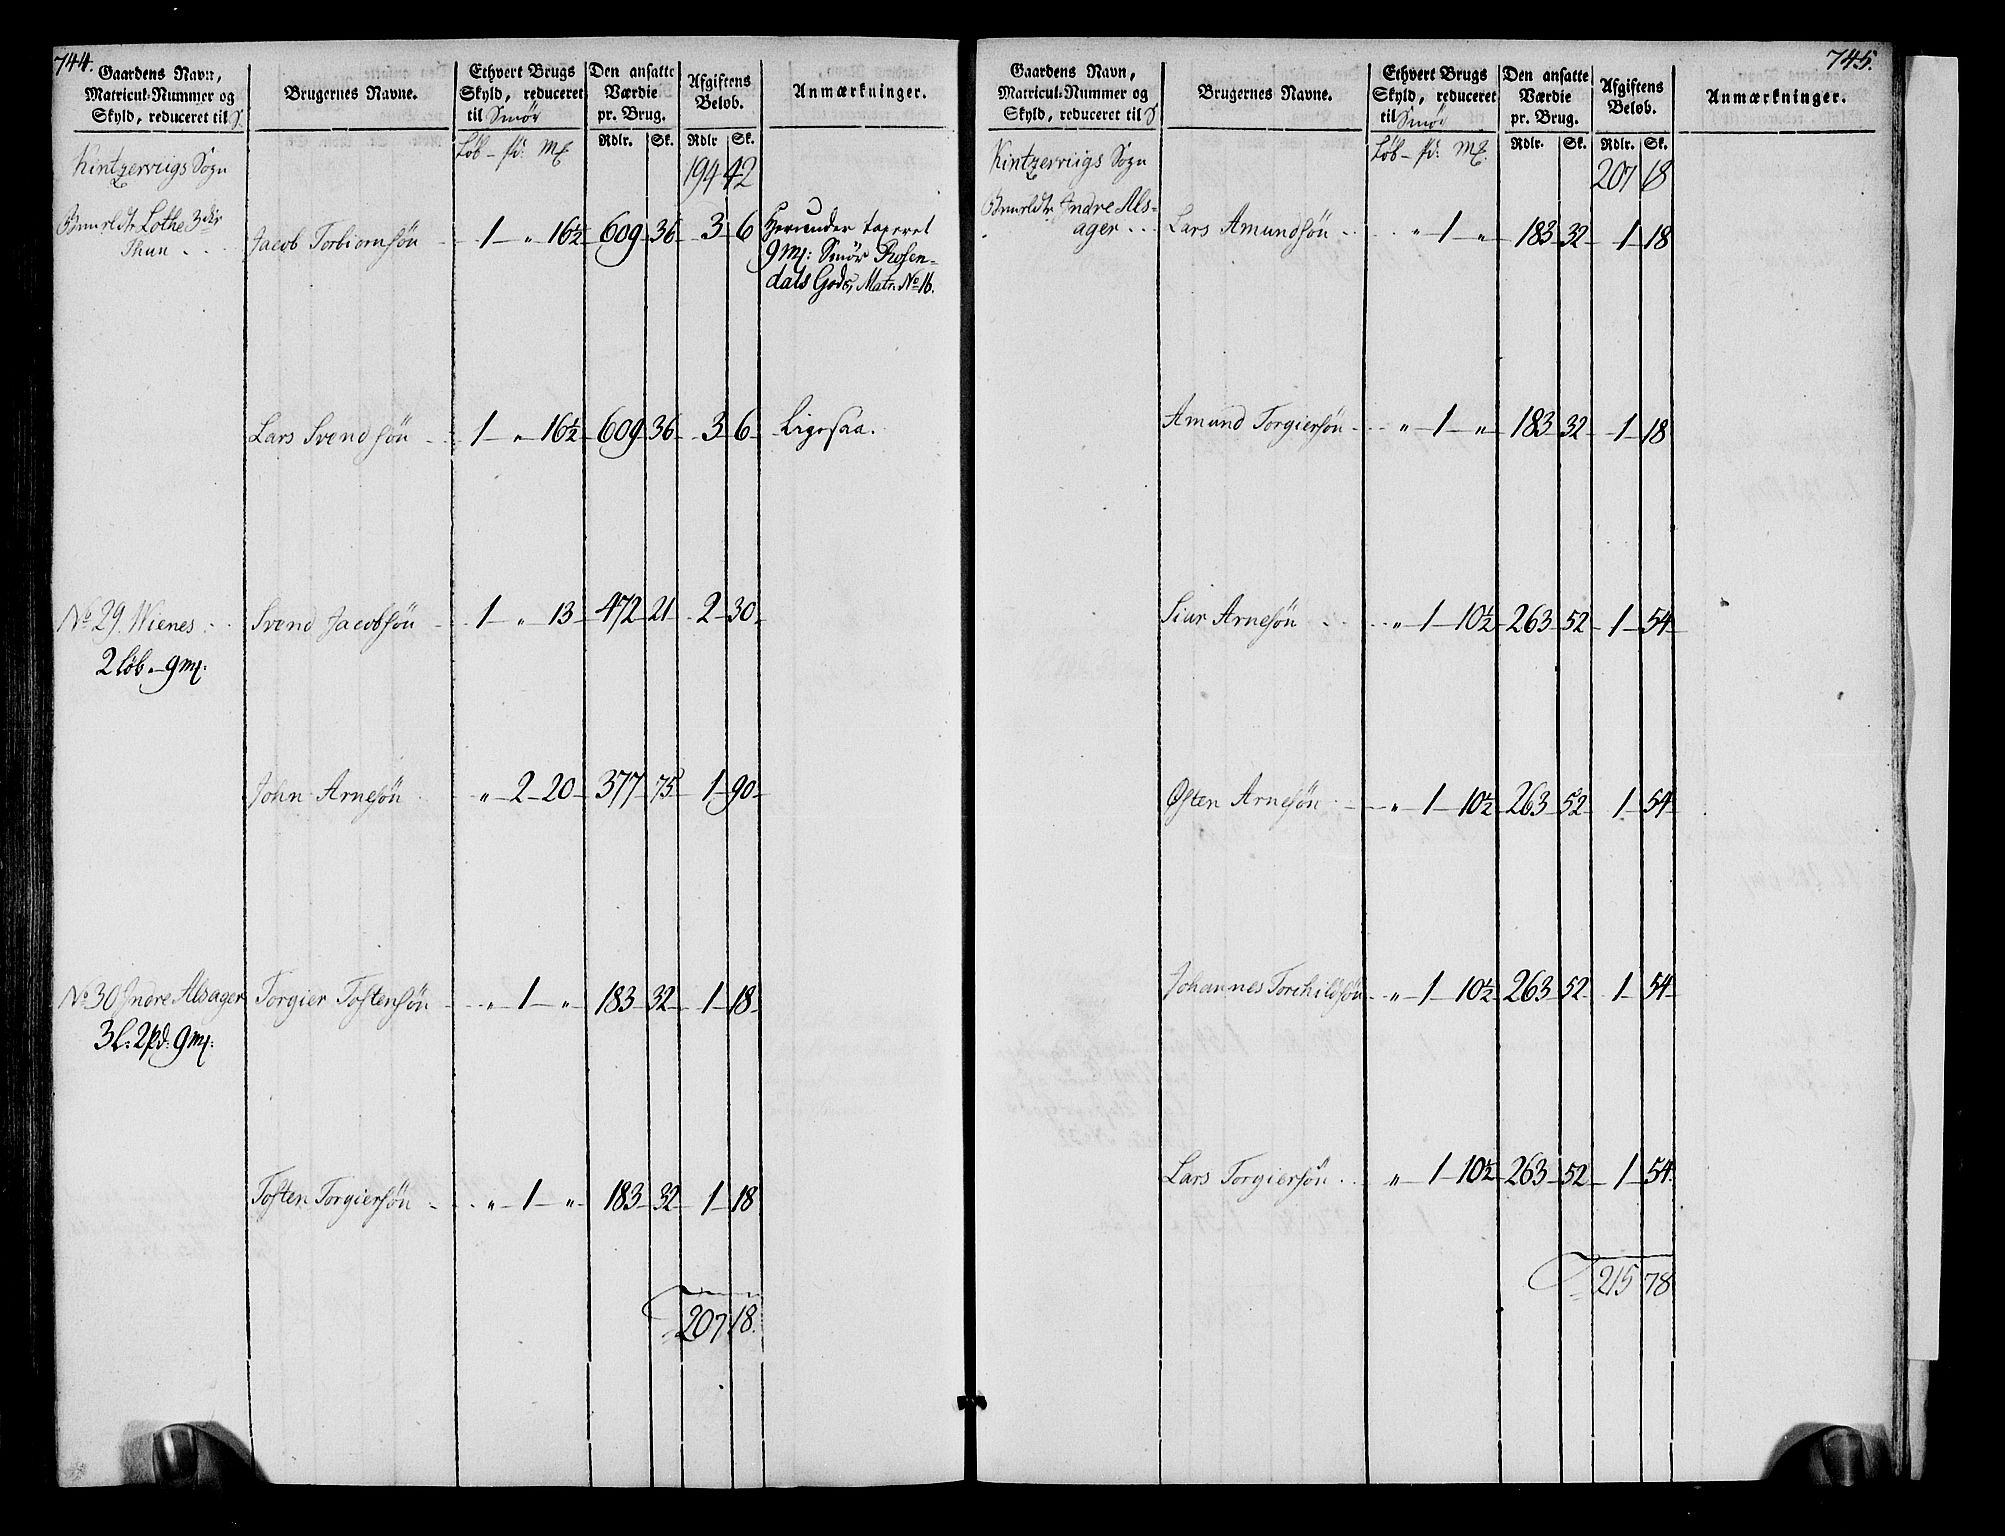 744.
Gaardens Navn,
Matricul-Nummer og
Skyld, reduceret til
Brugernes Navne.
Ethvert Brugs
Skyld, reduceret
til Smör
Den ansatte
Værdie
pr. Brug.
Afgiftens
Beløb.
Anmærkninger.
Løb – Pd: Mk
Rdlr. Sk. Rdlr Sk.
Kintzerviigs Sogn
194 42
Lothe 3die
Thun . . Jacob Torbiornsön 1 – „ 16½ 609 36 3 6 Herunder taxeret
9 mk: Smör Rosen-
dals Gods, Matr. No 16.
Lars Svendsön 1 – „ 16½ 609 36 3 6 Ligesaa.
No 29. Wienes . . Svend Jacobsön 1 „ 13 472 21 2 30
2 löb „ 9 mk:
John Arnesön „ 2 20 377 75 1 90
No 30 Indre Alsager Torgier Tostensön „ 1 „ 183 32 1 18
3 l: 2 pd: 9 mk:
Tosten Torgiersön „ 1 „ 183 32 1 18
207 18.
745.
Gaardens Navn,
Matricul-Nummer og
Skyld, reduceret til
Brugernes Navne.
Ethvert Brugs
Skyld, reduceret
til Smör
Den ansatte
Værdie
pr. Brug.
Afgiftens
Beløb.
Anmærkninger.
Løb – Pd: Mk.
Rdlr. Sk. Rdlr. Sk.
Kintzerviigs Sogn
207 18
Indre Als-
ager . . . Lars Amundsön „ 1 „ 183 32 1 18
Amund Torgiersön „ 1 „ 183 32 1 18
Siur Arnesön „ 1 10½ 263 52 1 54
Östen Arnesön „ 1 10½ 263 52 1 54
Johannes Torchildsön „ 1 10½ 263 52 1 54
Lars Torgiersön „ 1 10½ 263 52 1 54.
215 78